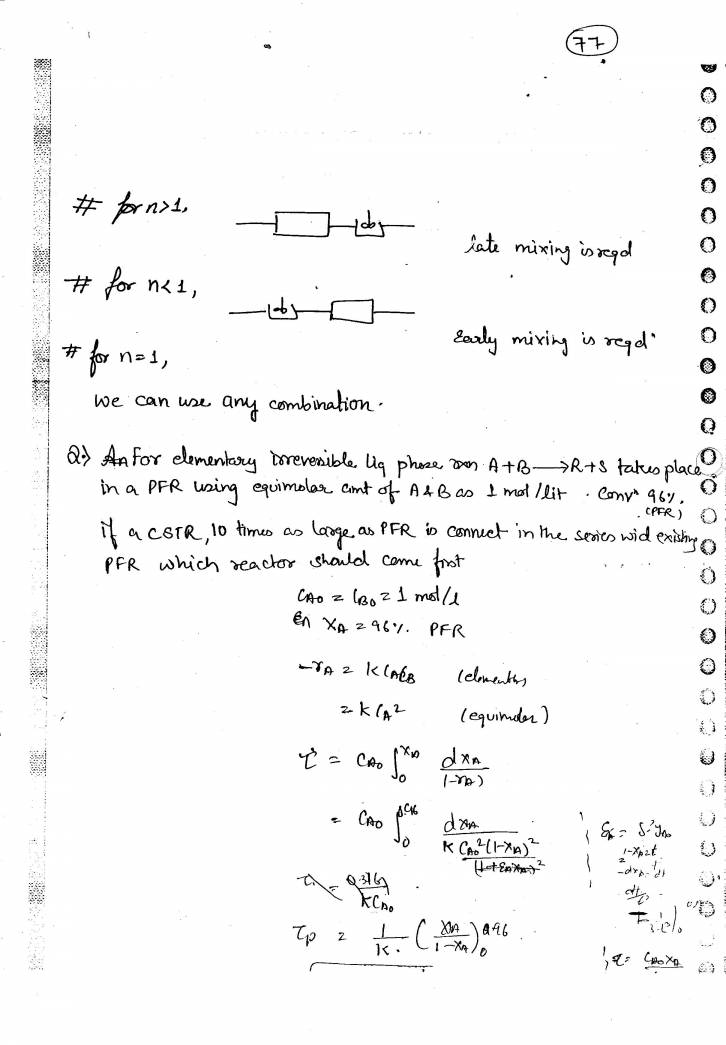 77
# for n>1,
late mixing is reqd
# for n<1,
Early mixing is reqd.
# for n=1,
we can use any combination.
Q.) For elementary irreversible liq phase rxn A+B → R+S takes place
in a PFR using equimolar amt of A & B as 1 mol/lit . Convⁿ 96%.
(PFR)
if a CSTR, 10 times as large as PFR is connect in the series wid existing
PFR which reactor should come first
CA0 = CB0 = 1 mol/l
XA = 96%. PFR
-rA = K CA CB (elementry)
= K CA² (equimolar)
τ = CA0 ∫₀^XA dXA / (-rA)
= CA0 ∫₀^0.96 dXA / K CA0² (1-XA)²
(1+εAXA)²
KCA0
τp = 1/K. (XA / 1-XA)₀^0.96
CA0 XA